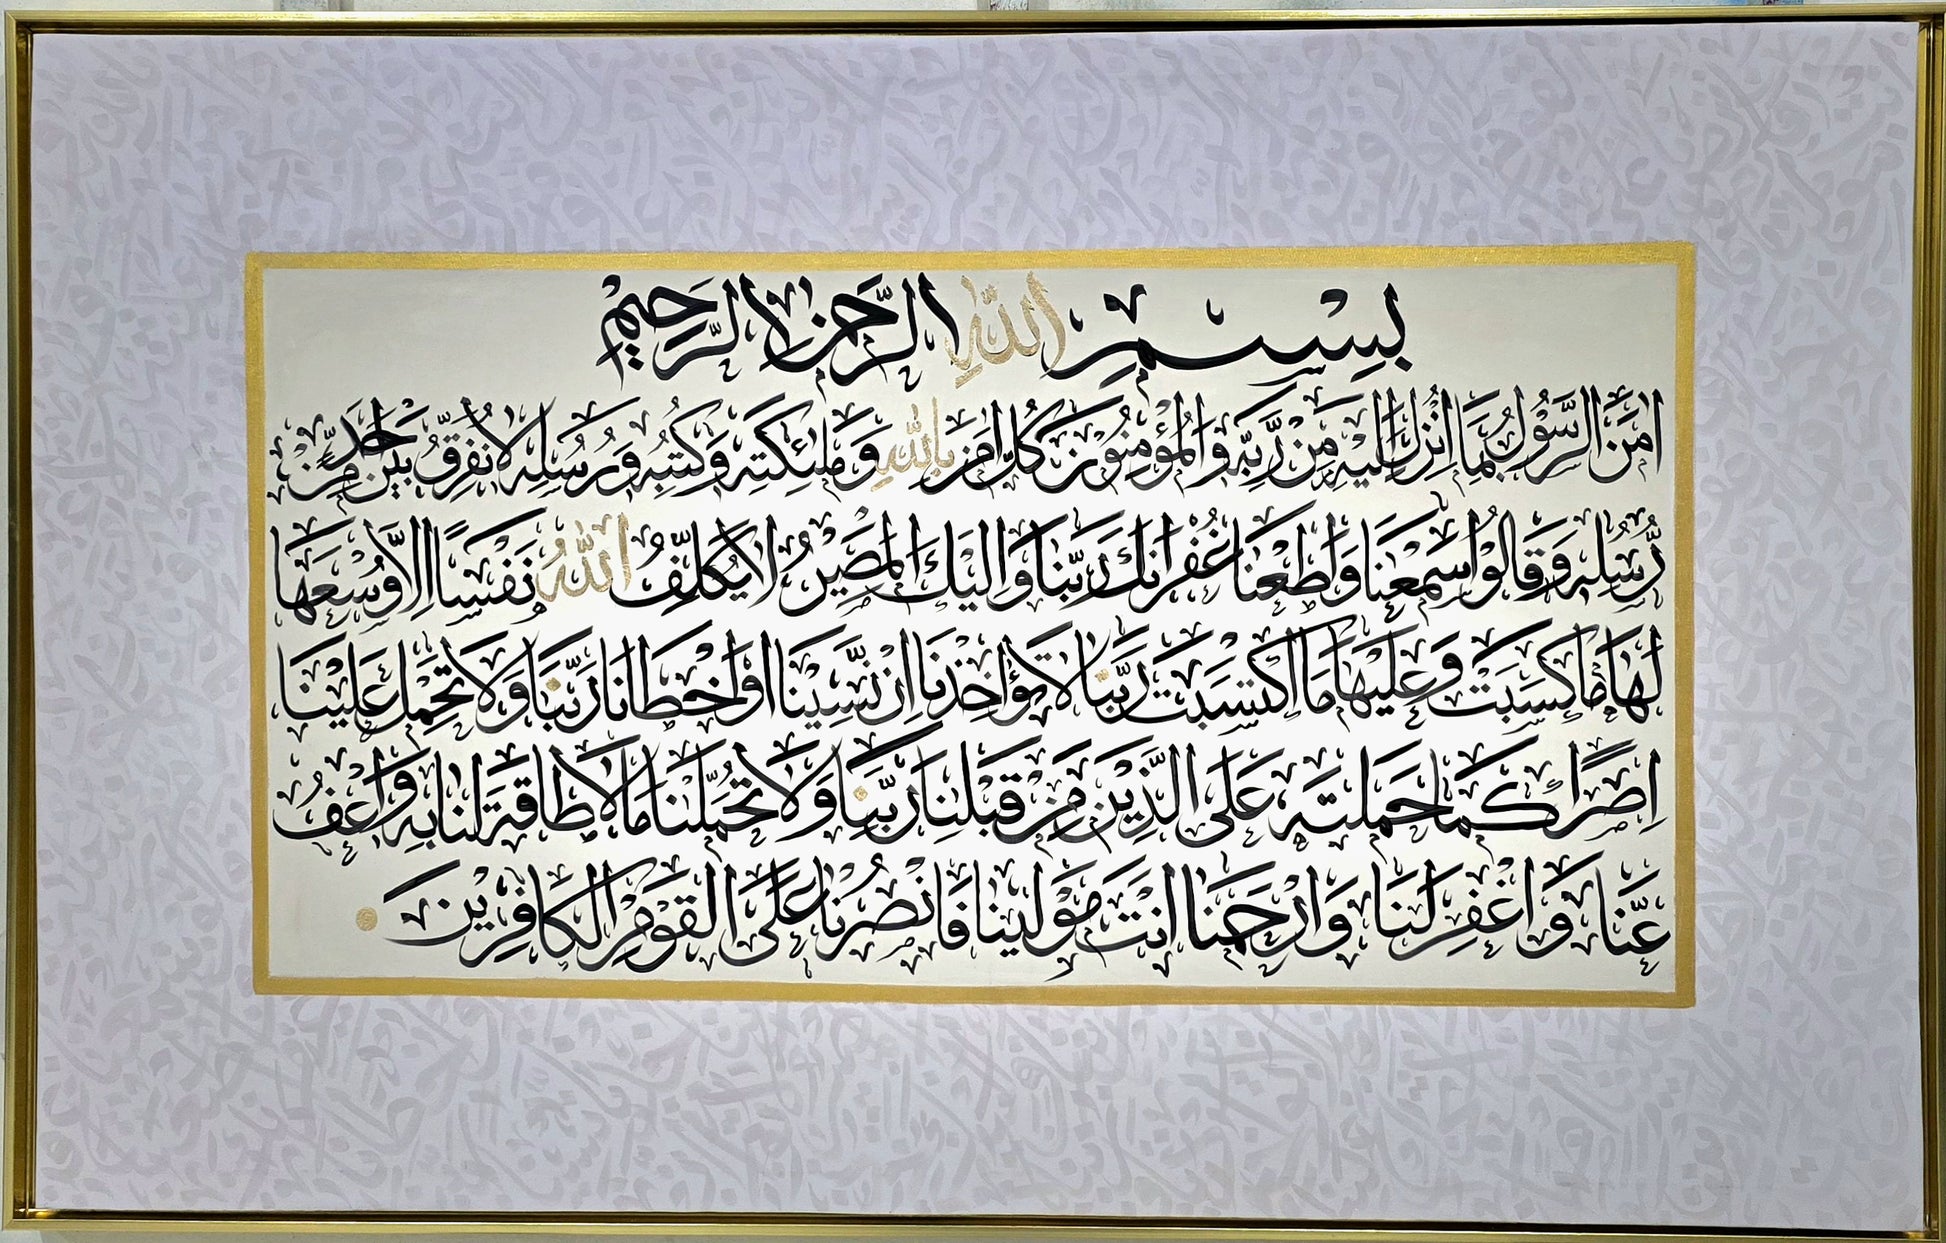 بِسْمِ اللّٰهِ الرَّحْمٰنِ الرَّحِيْمِ
اٰمَنَ الرَّسُوْلُ بِمَا اُنْزِلَ اِلَيْهِ مِنْ رَّبِّهٖ وَالْمُؤْمِنُوْنَ كُلٌّ اٰمَنَ بِاللّٰهِ وَمَلٰئِكَتِهٖ وَكُتُبِهٖ وَرُسُلِهٖ لَا نُفَرِّقُ بَيْنَ اَحَدٍ مِّنْ
رُّسُلِهٖ وَقَالُوْا سَمِعْنَا وَاَطَعْنَا غُفْرَانَكَ رَبَّنَا وَاِلَيْكَ الْمَصِيْرُ لَا يُكَلِّفُ اللّٰهُ نَفْسًا اِلَّا وُسْعَهَا
لَهَا مَا كَسَبَتْ وَعَلَيْهَا مَا اكْتَسَبَتْ رَبَّنَا لَا تُؤَاخِذْنَا اِنْ نَّسِيْنَا اَوْ اَخْطَانَا رَبَّنَا وَلَا تَحْمِلْ عَلَيْنَا
اِصْرًا كَمَا حَمَلْتَهٗ عَلَى الَّذِيْنَ مِنْ قَبْلِنَا رَبَّنَا وَلَا تُحَمِّلْنَا مَا لَا طَاقَةَ لَنَا بِهٖ وَاعْفُ
عَنَّا وَاغْفِرْ لَنَا وَارْحَمْنَا اَنْتَ مَوْلٰىنَا فَانْصُرْنَا عَلَى الْقَوْمِ الْكَافِرِيْنَ